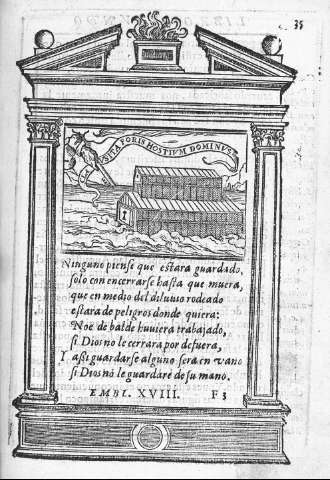 35
SIRA FORIS HOSTIVM DOMINVS
Ninguno piense que estara guardado,
solo con encerrarse hasta que muera,
que en medio del diluuio rodeado
estara de peligros donde quiera:
Noë de balde huuiera trabajado,
si Dios no le cerrara por defuera,
Y asi guardarse alguno sera en vano
si Dios nò le guardare de su mano.
EMBL. XVIII. F3